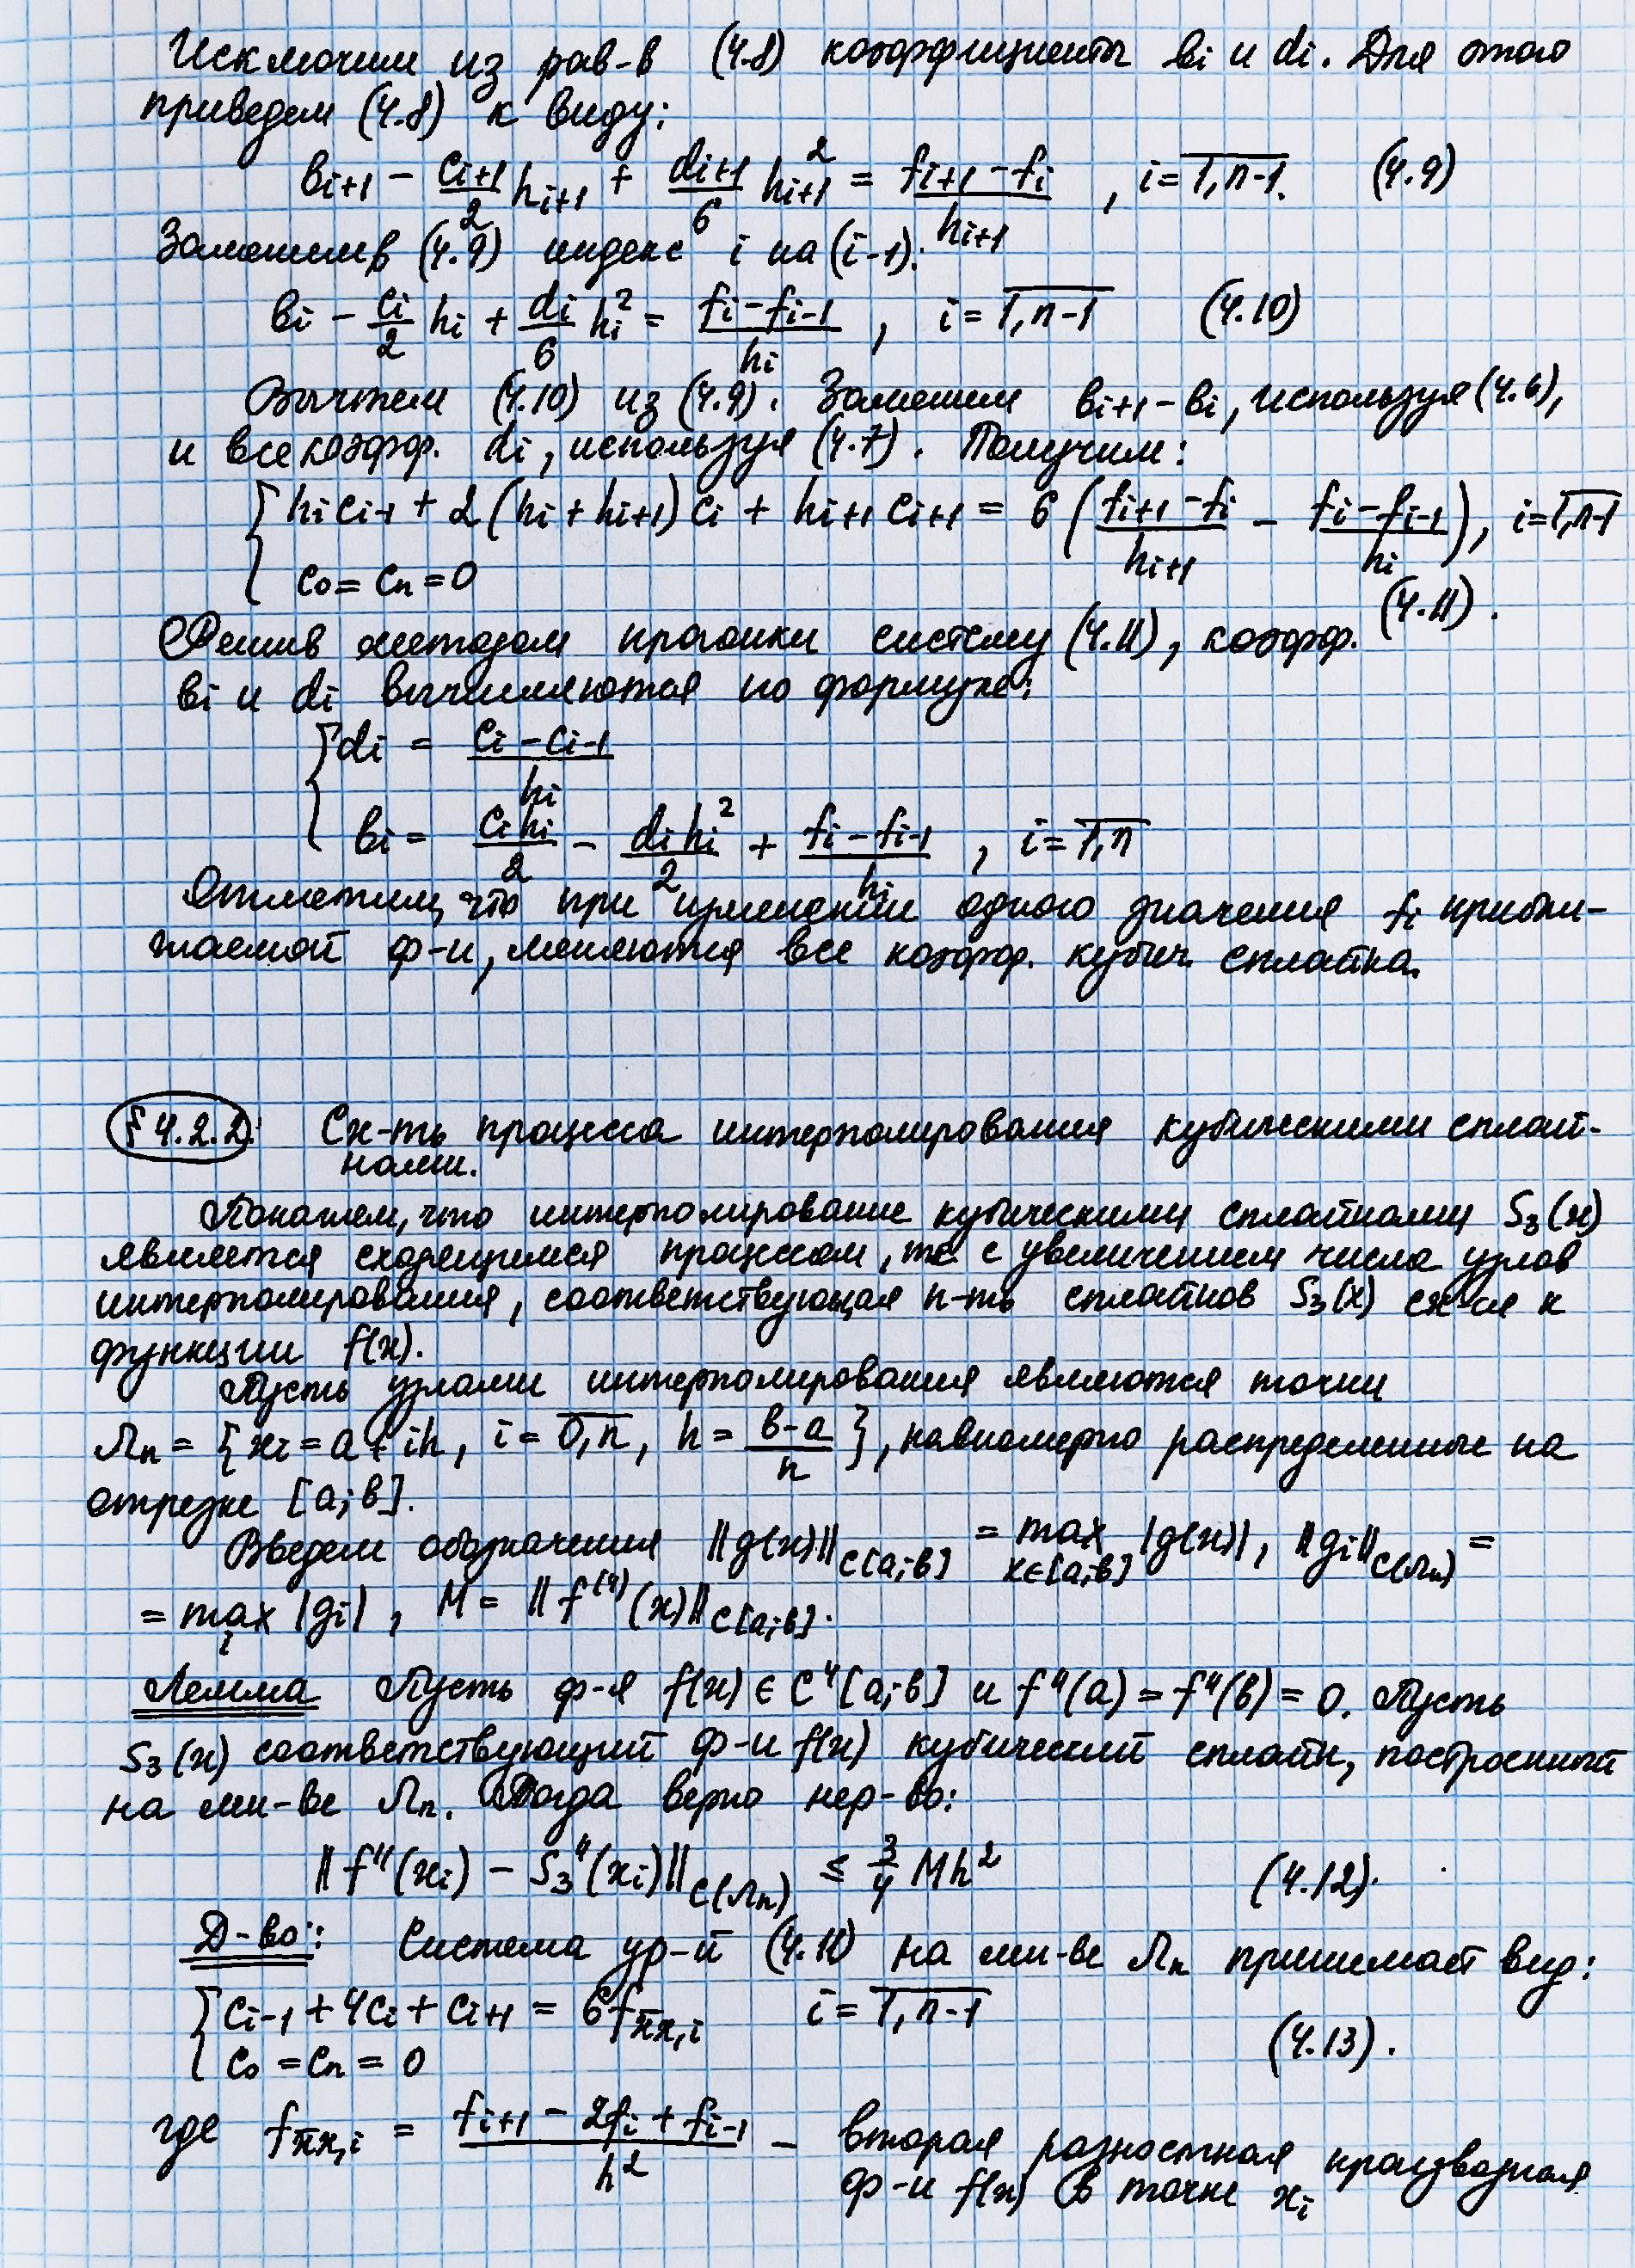 Исключим из рав-в (4.8) коэффициенты bi и di. Для этого
приведем (4.8) к виду:
b_{i+1} - \frac{c_{i+1}}{2} h_{i+1} + \frac{d_{i+1}}{6} h_{i+1}^2 = \frac{f_{i+1} - f_i}{h_{i+1}}, i = \overline{1,n-1}. (4.9)
Заменим в (4.9) индекс i на (i-1):
b_i - \frac{c_i}{2} h_i + \frac{d_i}{6} h_i^2 = \frac{f_i - f_{i-1}}{h_i}, i = \overline{1,n-1} (4.10)
Вычтем (4.10) из (4.9). Заменим b_{i+1} - b_i, используя (4.6),
и все коэфф. di, используя (4.7). Получим:
h_i c_{i-1} + 2(h_i + h_{i+1}) c_i + h_{i+1} c_{i+1} = 6 ( \frac{f_{i+1} - f_i}{h_{i+1}} - \frac{f_i - f_{i-1}}{h_i} ), i = \overline{1,n-1}
c_0 = c_n = 0 (4.11).
Решив методом прогонки систему (4.11), коэфф.
bi и di вычисляются по формуле:
d_i = \frac{c_i - c_{i-1}}{h_i}
b_i = \frac{c_i h_i}{2} - \frac{d_i h_i^2}{2} + \frac{f_i - f_{i-1}}{h_i}, i = \overline{1,n}
Отметим, что при изменении одного значения fi прибли-
жаемой ф-и, меняются все коэфф. кубич. сплайна.
§ 4.2.2. Сх-ть процесса интерполирования кубическими сплай-
нами.
Покажем, что интерполирование кубическими сплайнами S_3(x)
является сходящимся процессом, те с увеличением числа узлов
интерполирования, соответствующая п-ть сплайнов S_3(x) сх-ся к
функции f(x).
Пусть узлами интерполирования являются точки
Λ_n = { x_i = a + ih, i = \overline{0,n}, h = \frac{b-a}{n} }, равномерно распределенные на
отрезке [a;b].
Введем обозначения ||g(x)||_{C[a;b]} = max_{x∈[a;b]} |g(x)|, ||g_i||_{C(Λ_n)} =
= max_i |g_i|, M = ||f^{(4)}(x)||_{C[a;b]}.
Лемма Пусть ф-я f(x) ∈ C^4[a;b] и f''(a) = f''(b) = 0. Пусть
S_3(x) соответствующий ф-и f(x) кубический сплайн, построенный
на мн-ве Λ_n. Тогда верно нер-во:
||f''(x_i) - S_3''(x_i)||_{C(Λ_n)} ≤ \frac{3}{4} Mh^2 (4.12).
Д-во: Система ур-й (4.11) на мн-ве Λ_n принимает вид:
c_{i-1} + 4c_i + c_{i+1} = 6f_{\overline{x}x,i} i = \overline{1,n-1}
c_0 = c_n = 0 (4.13).
где f_{\overline{x}x,i} = \frac{f_{i+1} - 2f_i + f_{i-1}}{h^2} - вторая разностная производная
ф-и f(x) в точке x_i